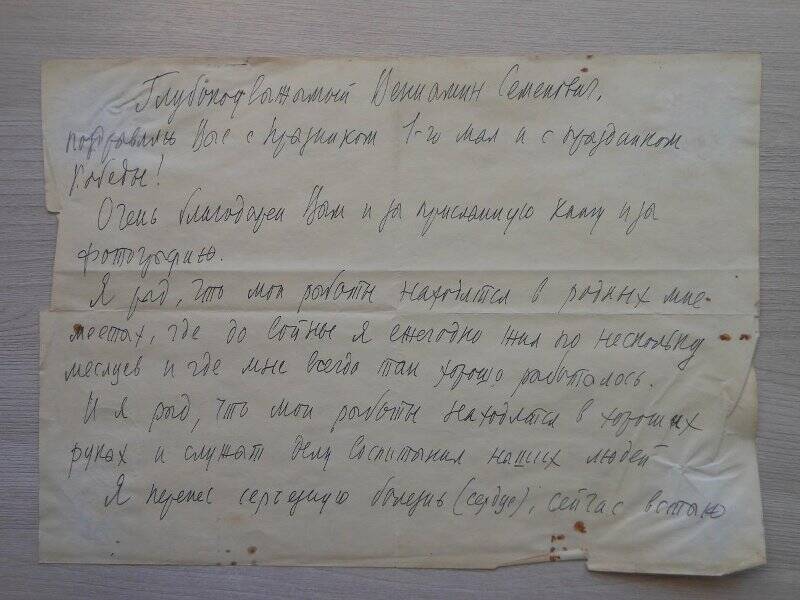 Глубокоуважаемый Вениамин Семенович,
поздравляю Вас с праздником 1-го мая и с праздником
Победы!
Очень благодарен Вам и за присланную книгу и за
фотографию.
Я рад, что мои работы находятся в родных мне
местах, где до войны я ежегодно жил по нескольку
месяцев и где мне всегда так хорошо работалось.
И я рад, что мои работы находятся в хороших
руках и служат делу воспитания наших людей
Я перенес серьезную болезнь (сердце), сейчас встаю